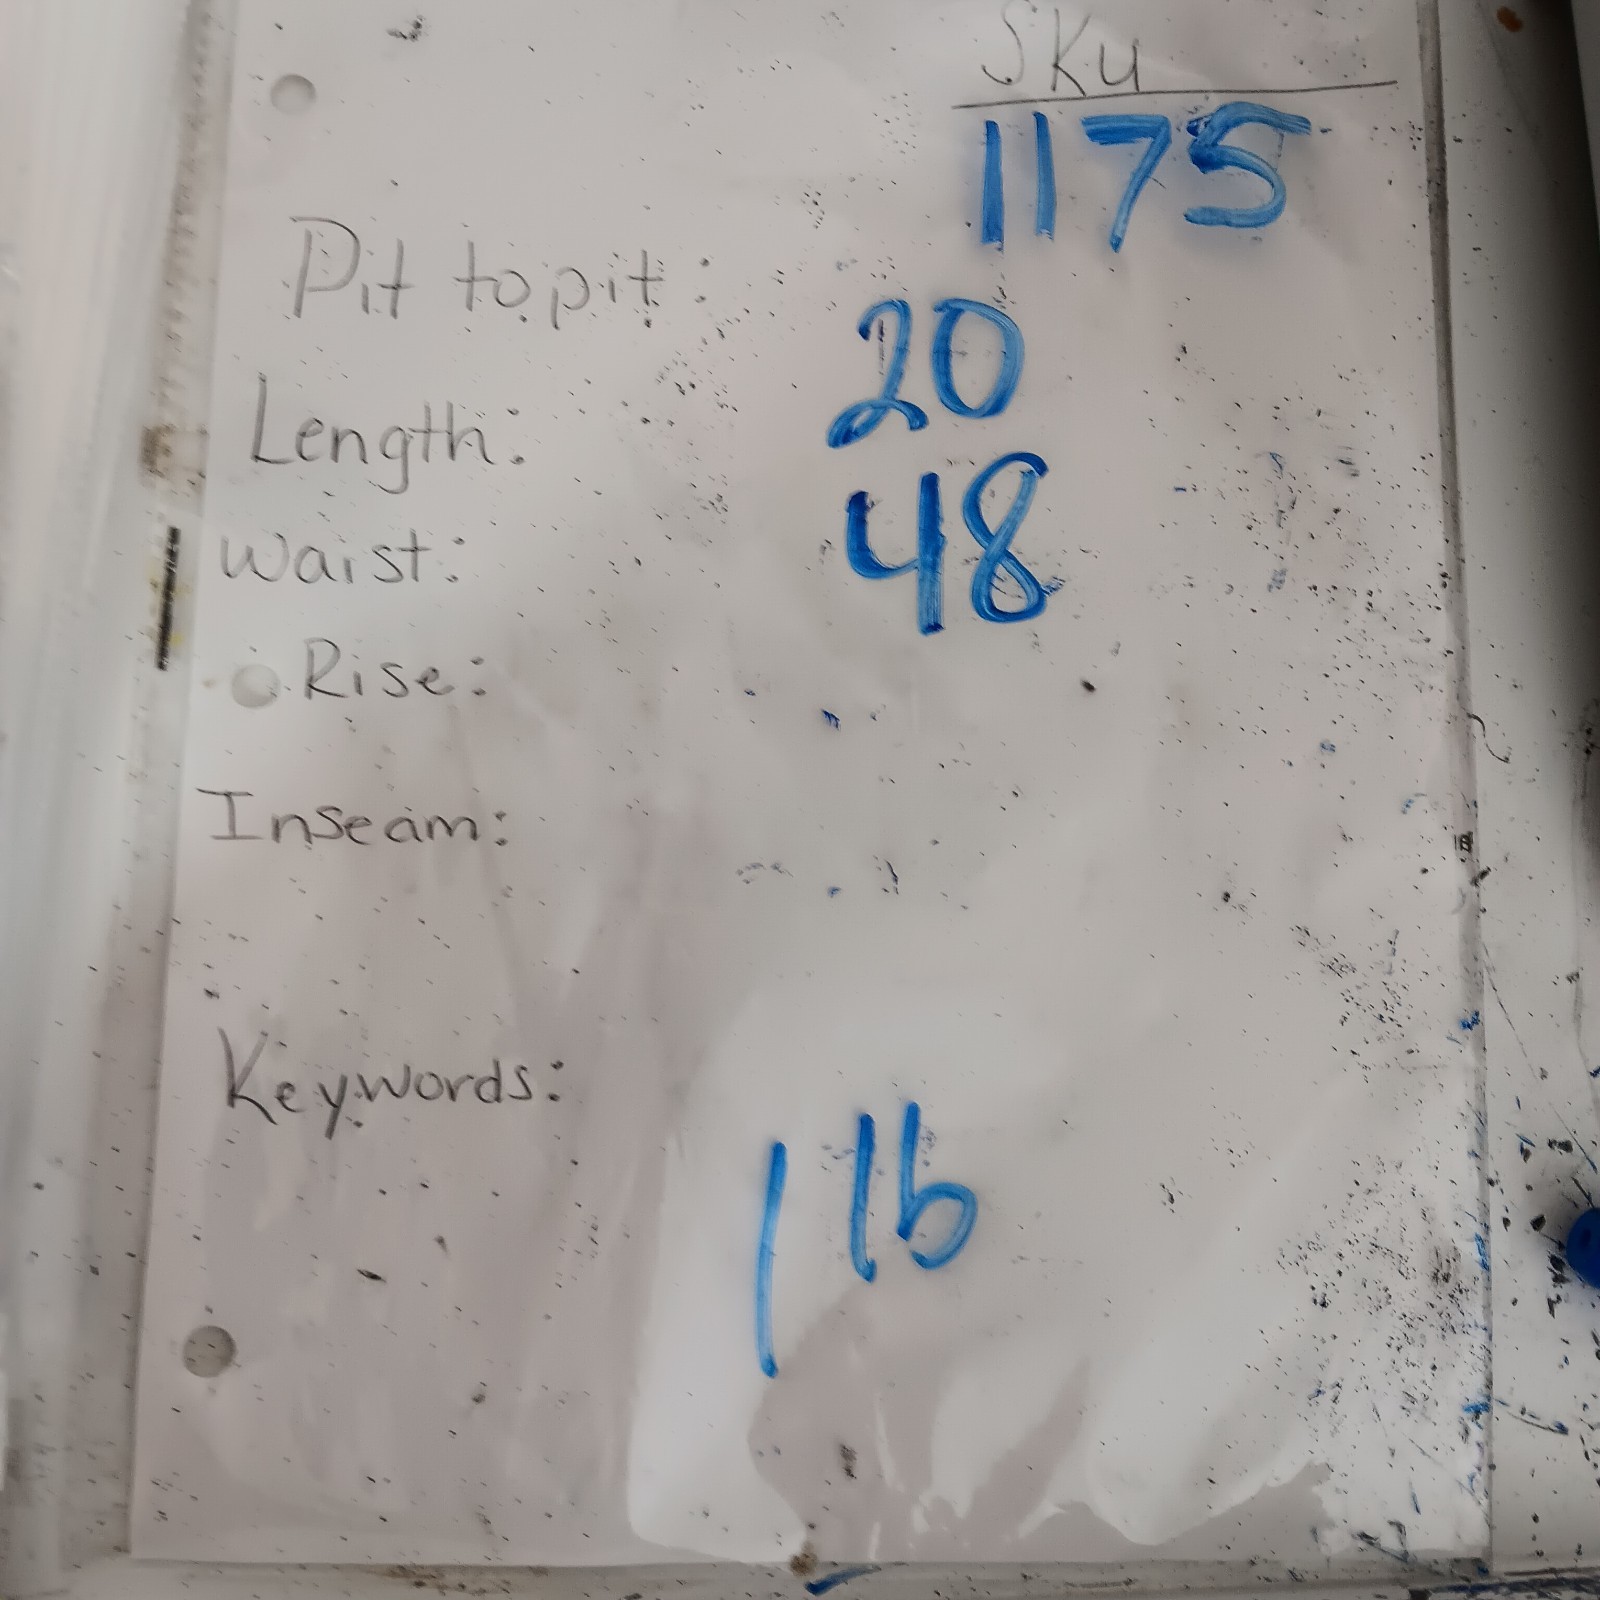 SKu
1175
Pit to pit: 20
Length: 48
Waist:
Rise:
Inseam:
Keywords:
1 lb